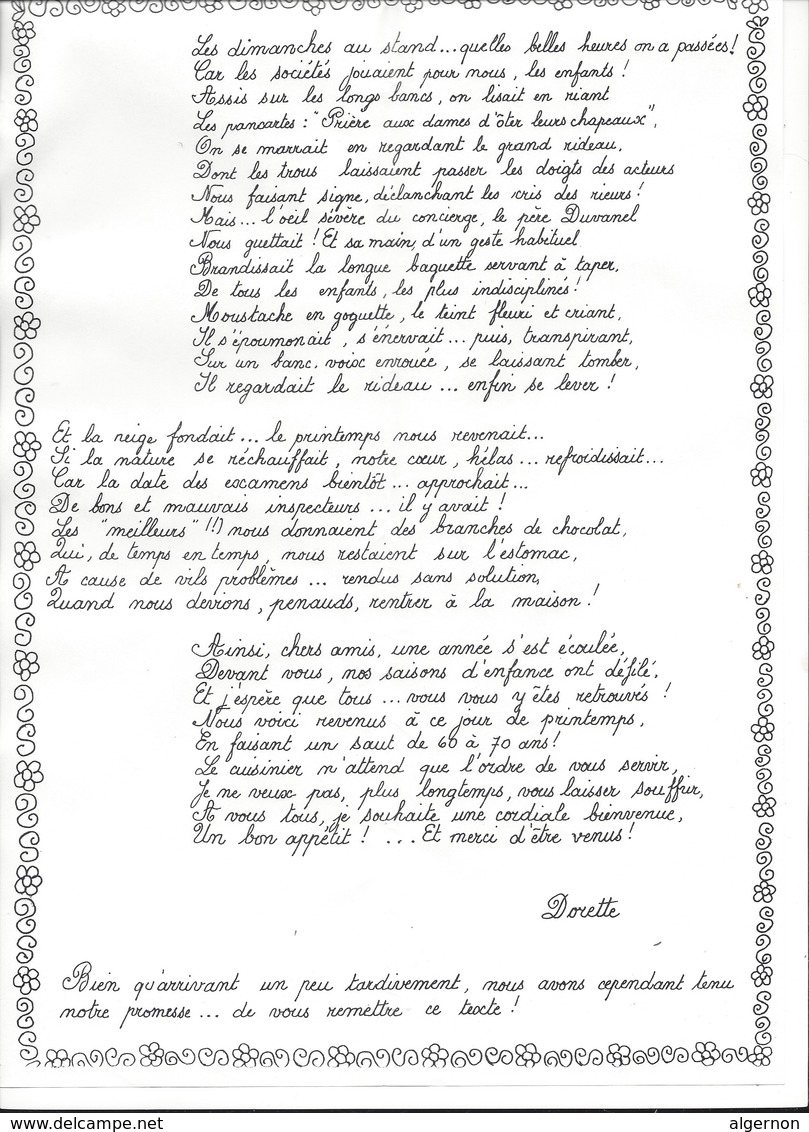 Les dimanches au stand... quelles belles heures on a passées!
Car les sociétés jouaient pour nous, les enfants!
Assis sur les longs bancs, on lisait en riant
Les pancartes : "Prière aux dames d'ôter leurs chapeaux",
On se marrait en regardant le grand rideau,
Dont les trous laissaient passer les doigts des acteurs
Nous faisant signe, déclanchant les cris des rieurs!
Mais... l'oeil sévère du concierge, le père Duvanel
Nous guettait! Et sa main, d'un geste habituel
Brandissait la longue baguette servant à taper,
De tous les enfants, les plus indisciplinés!
Moustache en goguette, le teint fleuri et criant,
Il s'époumonait, s'énervait... puis, transpirant,
Sur un banc, voix enrouée, se laissant tomber,
Il regardait le rideau ... enfin se lever!
Et la neige fondait... le printemps nous revenait...
Si la nature se réchauffait, notre cœur, hélas... refroidissait...
Car la date des examens bientôt... approchait...
De bons et mauvais inspecteurs ... il y avait!
Les "meilleurs" !!) nous donnaient des branches de chocolat,
Qui, de temps en temps, nous restaient sur l'estomac,
A cause de vils problèmes ... rendus sans solution,
Quand nous devions, penauds, rentrer à la maison!
Ainsi, chers amis, une année s'est écoulée,
Devant vous, nos saisons d'enfance ont défilé,
Et j'espère que tous ... vous vous y êtes retrouvés!
Nous voici revenus à ce jour de printemps,
En faisant un saut de 60 à 70 ans!
Le cuisinier n'attend que l'ordre de vous servir,
Je ne veux pas, plus longtemps, vous laisser souffrir,
A vous tous, je souhaite une cordiale bienvenue,
Un bon appétit! ... Et merci d'être venus!
Dorette
Bien qu'arrivant un peu tardivement, nous avons cependant tenu
notre promesse... de vous remettre ce texte!
www.delcampe.net
algernon